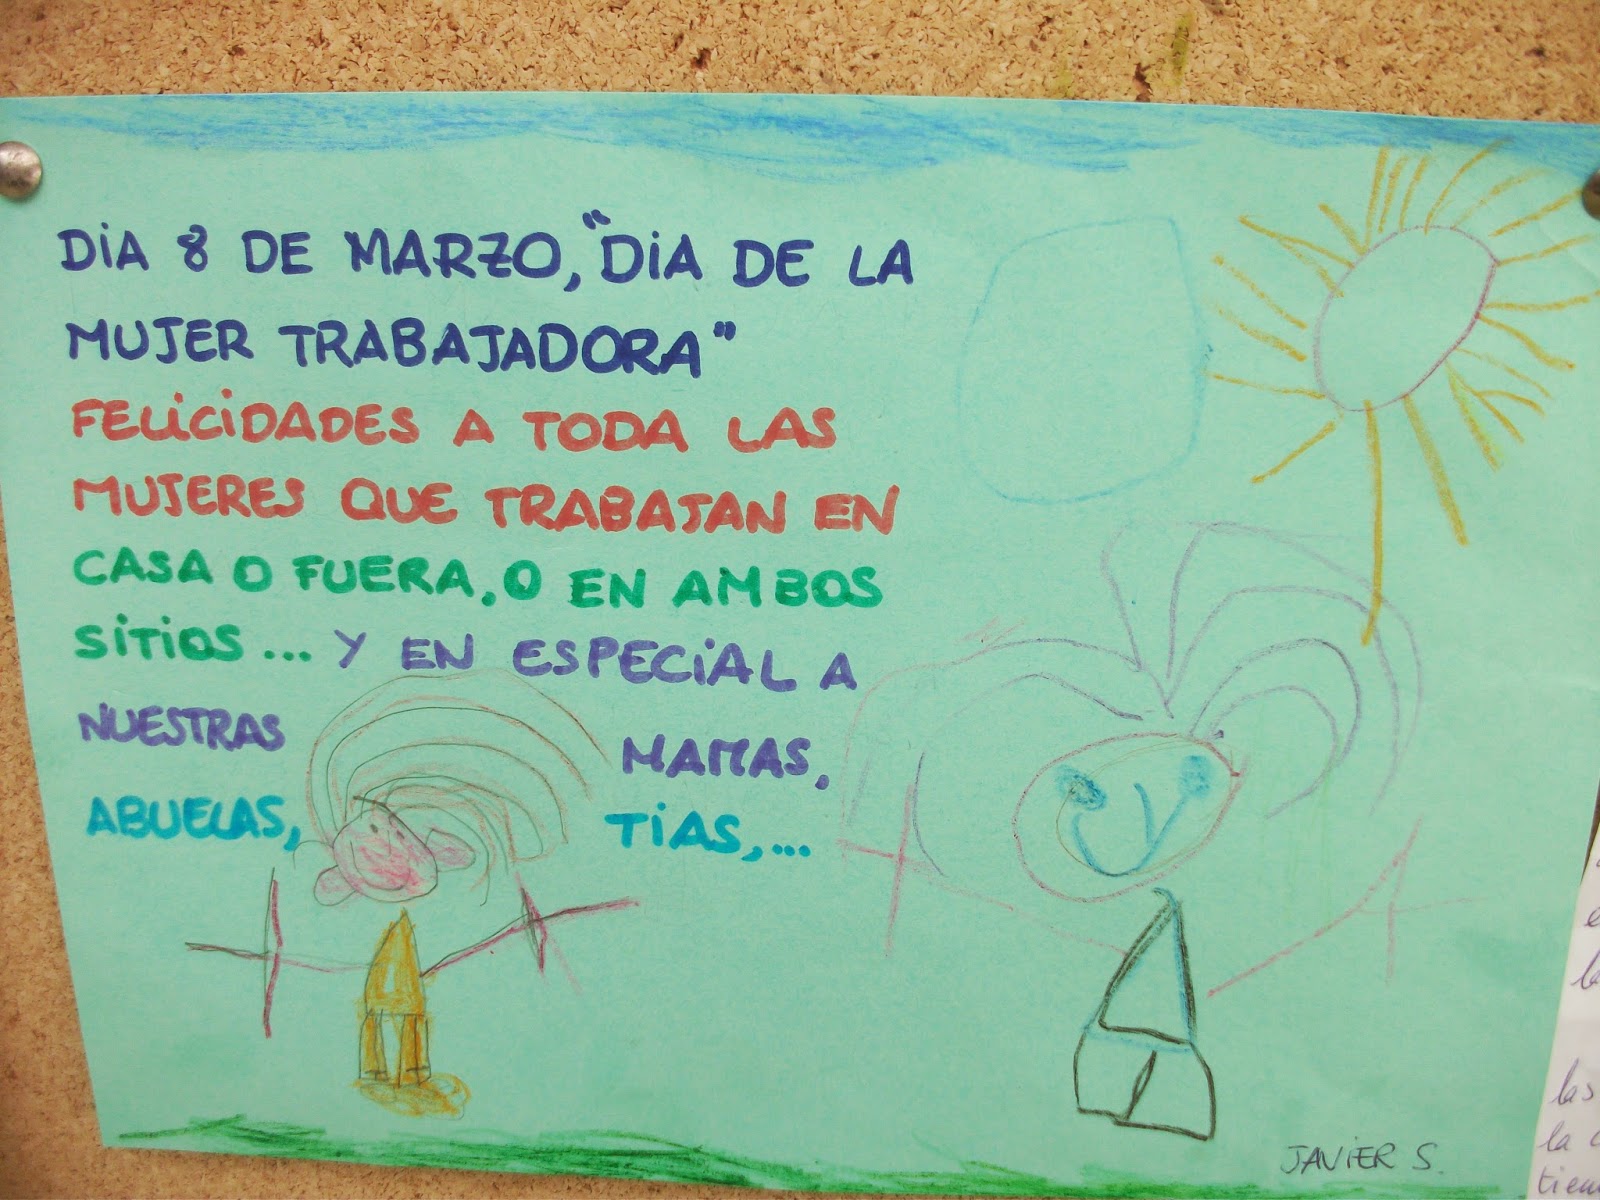 DiA 8 DE MARZO, "DiA DE LA
MUJER TRABAJADORA"
FELiCiDADES A TODA LAS
MUJERES QUE TRABAJAN EN
CASA O FUERA, O EN AMBOS
SiTiOS... Y EN ESPECiAL A
NUESTRAS MAMAS,
ABUELAS, TiAS,...
JAViER S.
las
la